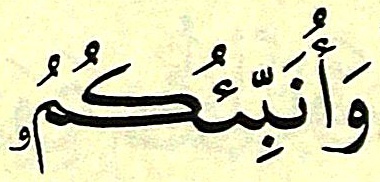 وَأُنَبِّئُكُمُۥ